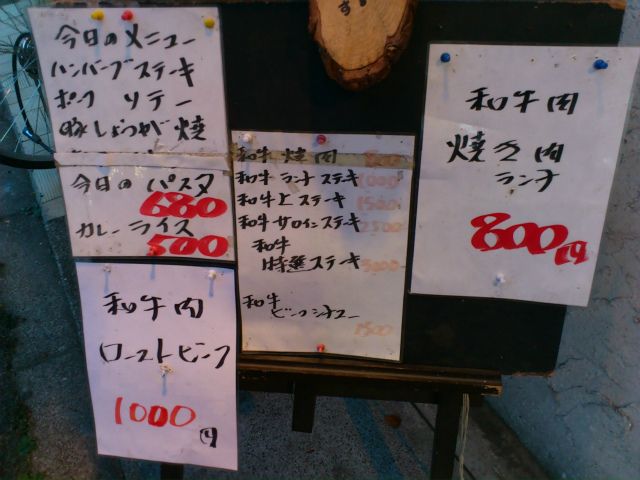 今日のメニュー
ハンバーグステーキ
ポーク ソテー
豚しょうが焼
今日の パスタ
680
カレーライス
500
和牛肉
ローストビーフ
1000円
和牛 焼肉 800
和牛 ランチ ステーキ 1000
和牛上ステーキ 1500
和牛サロインステーキ 2500
和牛
特選ステーキ
和牛
ビーフシチュー
1500
和牛肉
焼き肉
ランチ
800円